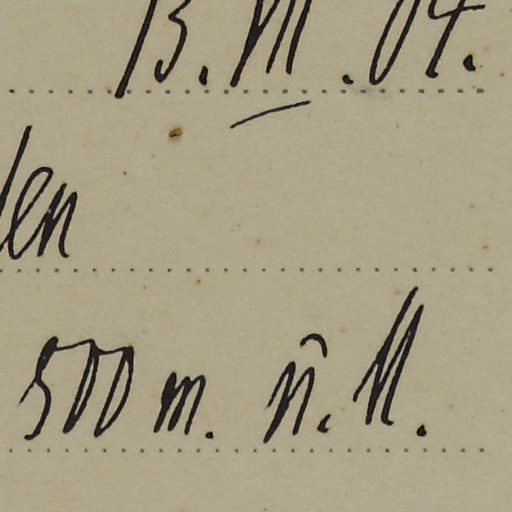 13. VII. 04.
den
500 m. ü. M.